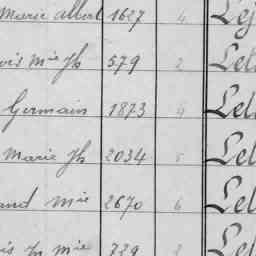 Marie Albert 1627 4 Lej
ois Mie Jh 579 2 Leb
Germain 1873 4 Lel
Marie Jh 2034 5 Lel
and Mie 2670 6 Lel
is Jh Mie 729 2 Lel